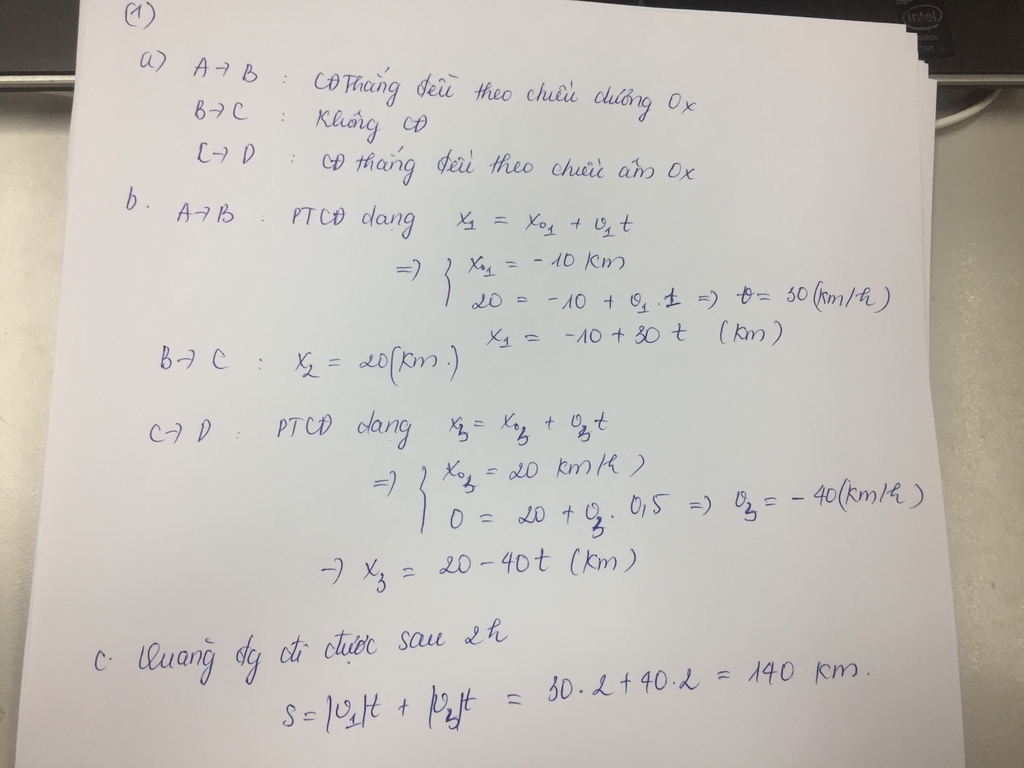 (1)
a) A → B : CĐ Thẳng đều theo chiều dương Ox
B → C : Không CĐ
C → D : CĐ thẳng đều theo chiều âm Ox
b. A → B : PTCĐ dang x₁ = x₀₁ + v₁t
=> { x₀₁ = -10 km
20 = -10 + v₁.1 => v = 30 (km/h)
x₁ = -10 + 30 t (km)
B → C : x₂ = 20 (km.)
C → D : PTCĐ dang x₃ = x₀₃ + v₃t
=> { x₀₃ = 20 km/h)
0 = 20 + v₃. 0,5 => v₃ = -40 (km/h)
→ x₃ = 20 - 40t (km)
c. Quãng đg đi được sau 2h
S = |v₁|t + |v₃|t = 30.2 + 40.2 = 140 km.
intel